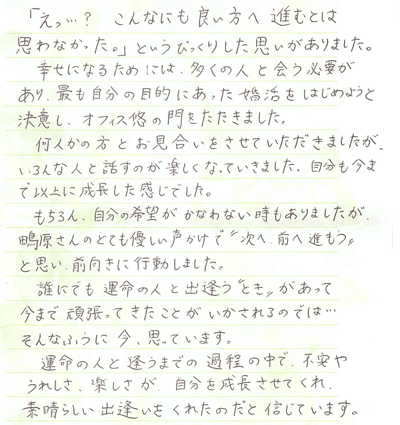 「えっ…？ こんなにも良い方へ進むとは
思わなかった。」というびっくりした思いがありました。
幸せになるためには、多くの人と会う必要が
あり、最も自分の目的にあった婚活をはじめようと
決意し、オフィス悠の門をたたきました。
何人かの方とお見合いをさせていただきましたが、
いろんな人と話すのが楽しくなっていきました。自分も今ま
で以上に成長した感じでした。
もちろん、自分の希望がかなわない時もありましたが、
鴫原さんのとても優しい声かけで〝次へ、前へ進もう〟
と思い、前向きに行動しました。
誰にでも運命の人と出逢う〝とき〟があって
今まで頑張ってきたことがいかされるのでは…
そんなふうに今、思っています。
運命の人と逢うまでの過程の中で、不安や
うれしさ、楽しさが、自分を成長させてくれ、
素晴らしい出逢いをくれたのだと信じています。